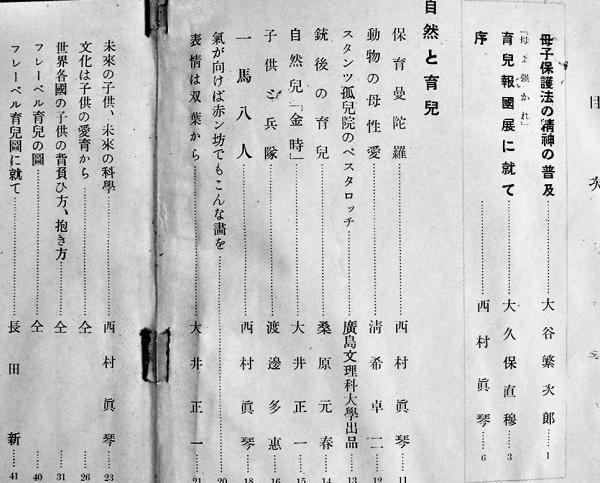 目次
母子保護法の精神の普及……大谷繁次郎……1
「母よ强かれ」
育兒報國展に就て……大久保直穆……3
序……西村眞琴……6
自然と育兒
保育曼陀羅……西村眞琴……11
動物の母性愛……淸希卓二……12
スタンツ孤兒院のペスタロッチ……廣島文理科大學出品……13
銃後の育兒……桑原元春……14
自然兒「金時」……大井正一……15
子供と兵隊……渡邊多惠……16
一馬八人……西村眞琴……18
氣が向けば赤ン坊でもこんな畵を……20
表情は双葉から……大井正一……21
未來の子供、未來の科學……西村眞琴……23
文化は子供の愛育から……仝……26
世界各國の子供の背負ひ方、抱き方……仝……31
フレーベル育兒の圖……仝……40
フレーベル育兒圖に就て……長田新……41